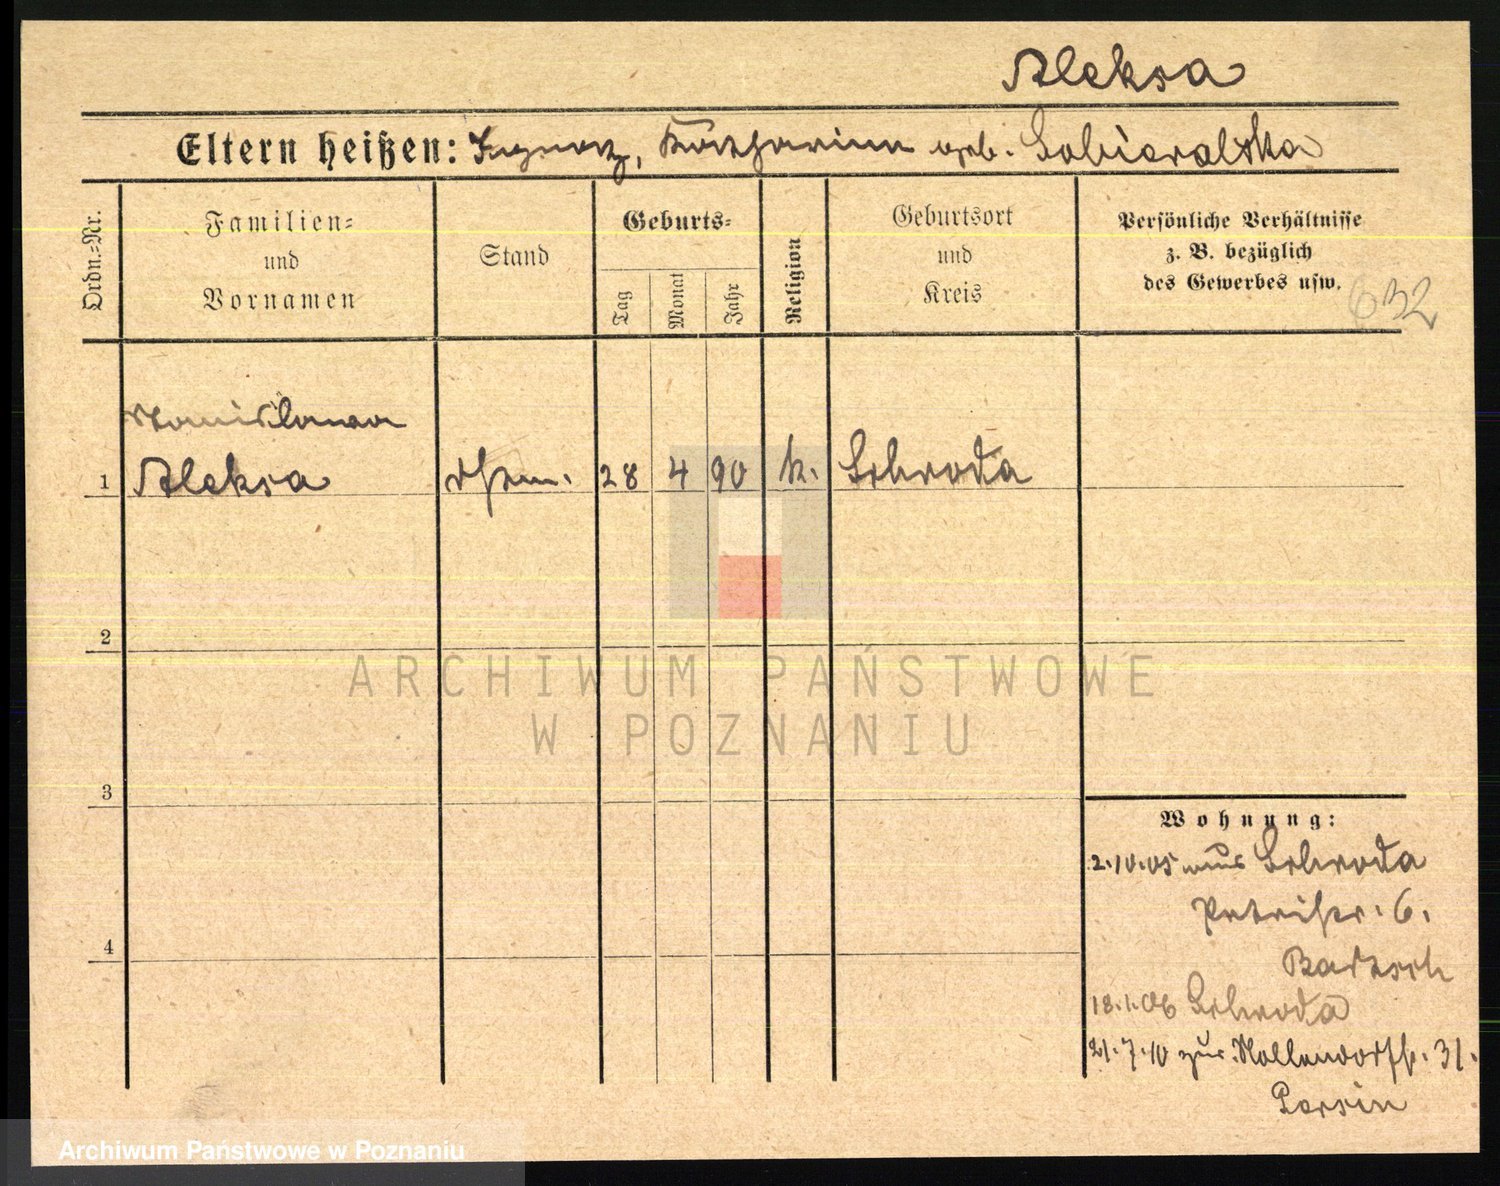 Aleksa
Eltern heißen: Ignatz, Katharina geb. Sobieralska
Ordn.-Nr.
Familien-
und
Vornamen
Stand
Geburts-
Tag
Monat
Jahr
Religion
Geburtsort
und
Kreis
Persönliche Verhältnisse
z. B. bezüglich
des Gewerbes usw.
632
Stanislawa
1 Aleksa 28 4 90 k. Schroda
2
3
4
Wohnung:
2.10.05 aus Schroda
Petristr. 6.
Bartsch
18.1.06 Schroda
21.7.10 zur. Nollendorfstr. 31.
Persin
ARCHIWUM PAŃSTWOWE
W POZNANIU
Archiwum Państwowe w Poznaniu